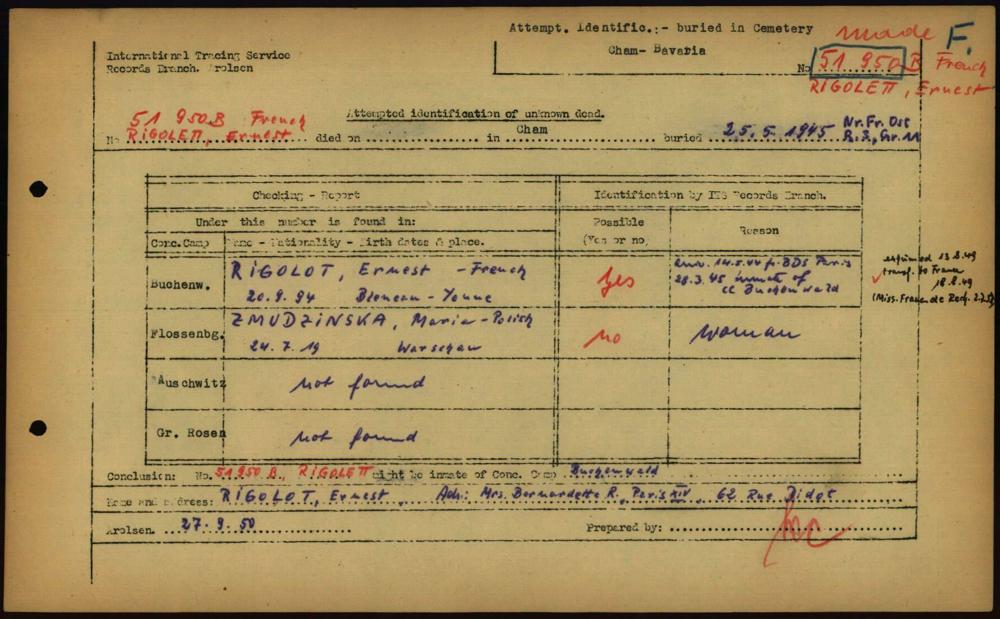 Attempt. Identific.:- buried in Cemetery
Cham- Bavaria
made F.
No 51 950 B French
RIGOLETT, Ernest
International Tracing Service
Records Branch. Arolsen
Attempted identification of unknown dead.
51 950B French
No RIGOLETT, Ernest died on in Cham buried 25.5.1945 Nr. Fr. Ost
R.2, Gr. 11
Checking - Report Identification by ITS Records Branch.
Under this number is found in: Possible Reason
Conc.Camp Name - Nationality - Birth dates & place. (Yes or no)
Buchenw. RIGOLOT, Ernest - French yes arr. 14.5.44 f. BDS Paris
20.9.94 Bleneau-Yonne 28.3.45 inmate of
CC Buchenwald
exhumed 13.8.49
transf. to France
18.8.49
Flossenbg. ZMUDZINSKA, Maria - Polish no woman
24.7.19 Warschau
Auschwitz not found
Gr. Rosen not found
Conclusion: No. 51950 B, RIGOLETT might be inmate of Conc. Camp Buchenwald
Name and address: RIGOLOT, Ernest, Adr: Mrs. Bernardette R., Paris XIV, 62 Rue Didot
Arolsen. 27.9.50 Prepared by: